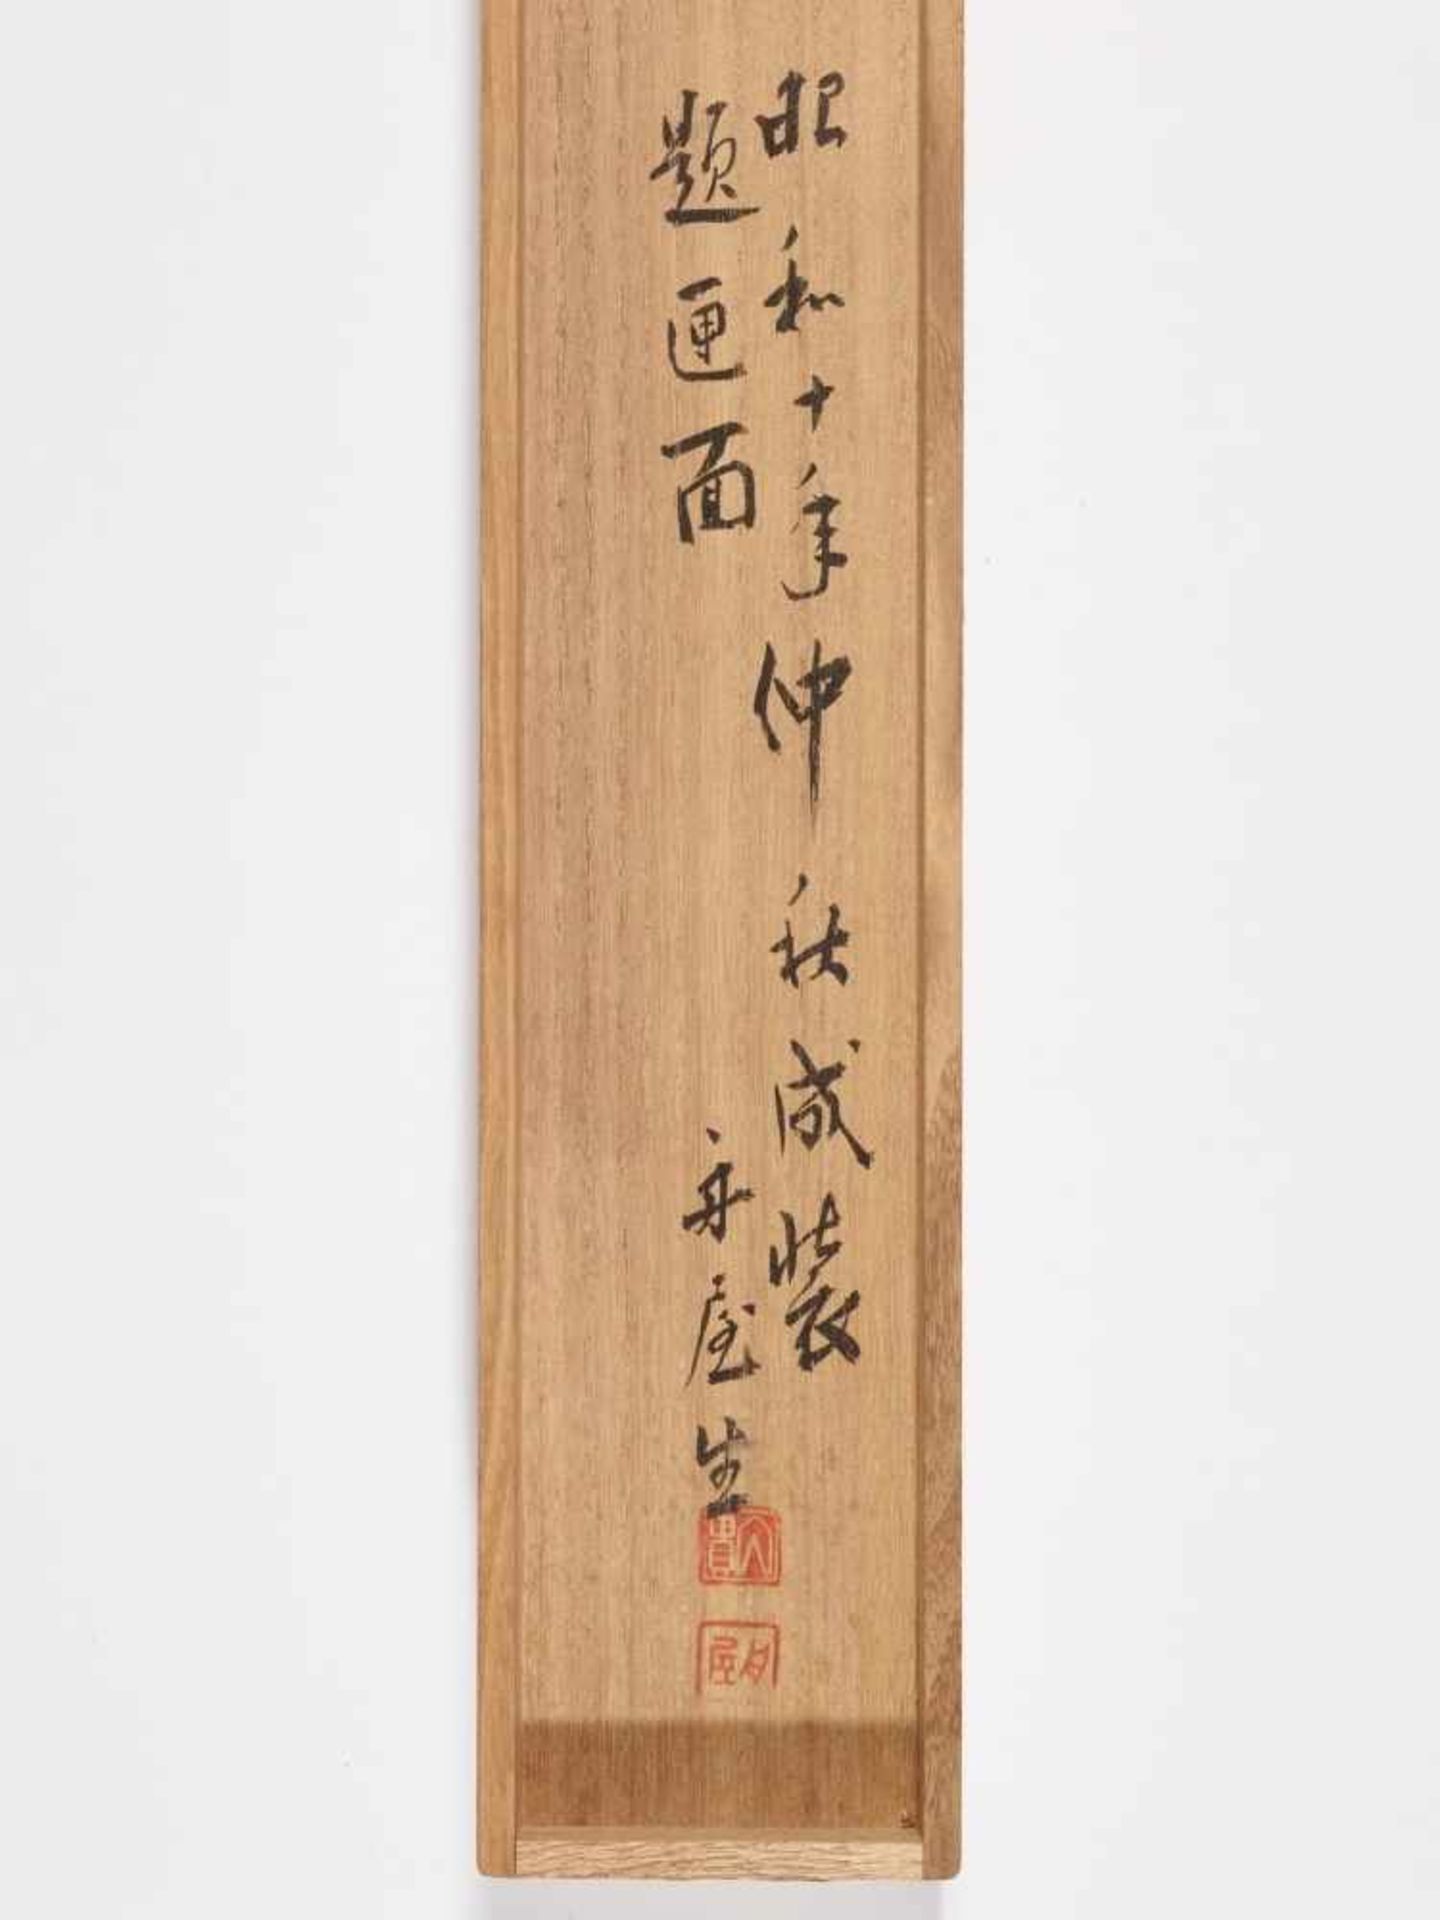 昭和十年仲秋成裝
題匣面
舟屋生